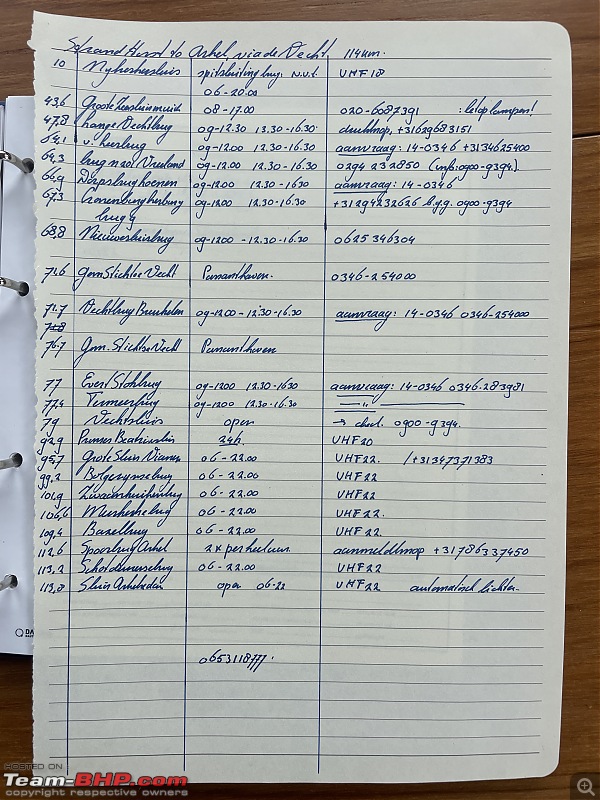 Strand Horst to Arkel, via de Vecht. 114 km.
10 Nykerkersluis spitssluiting brug. n.v.t. VHF 18
06-20.00
43,6 Grote Zeesluis muid 08-17.00 020-6087391 : let op lampen!
47,8 Lange Vechtbrug 09-12.30 13.30-16.30 drukknop, +31629683151
64,1 v. 09-12.00 12.30-16.30 aanvraag: 14-0346 +3134625400
64,3 brug 2201 Vreeland 09-12.00 12.30-16.30 0294 232850 (info: 0900-9394.)
66,9 Dorpsbrug Loenen 09-1200 12.30-16.30 aanvraag: 14-0346
67,3 Cronenburgherbrug 09-1200 12.30-16.30 +31294232626 b.g.g. 0900-9394
brug 4
68,8 Nieuwersluisbrug 09-1200 - 12.30-16.30 0625346304
71,6 Gem Stichtse Vecht Passanthaven. 0346-254000
71,7 Vechtbrug Breukelen 09-1200 - 12.30-16.30 aanvraag: 14-0346 0346-254000
76,7 Gem. Stichtse Vecht Passanthaven
77 Evert Stokbrug 09-1200 12.30-1630 aanvraag: 14-0346 0346-283981
77,4 Termeerbrug 09-1200 12.30-16.30 — " —
79 Vechtsluis open → 0900-9394.
92,9 Prinses Beatrixsluis 24h. VHF 20
95,7 Grote Sluis Vianen 06-22.00 VHF 22. /+31347371383
99,2 Bolgerysebrug 06-22.00 VHF 22
101,9 Zwaankuikenbrug 06-22.00 VHF 22
106,6 Meerkerksebrug 06-22.00 VHF 22.
109,4 Bazelbrug 06-22.00 VHF 22
112,6 Spoorbrug Arkel 2x per uur aanmeldknop +31786337450
113,2 Schotdeurensebrug 06-22.00 VHF 22
113,8 Sluis Arkelsedam open 06-22 VHF 22 automatisch lichten.
0653118777.
DA
HOSTED ON
Team-BHP.com
copyright respective owners